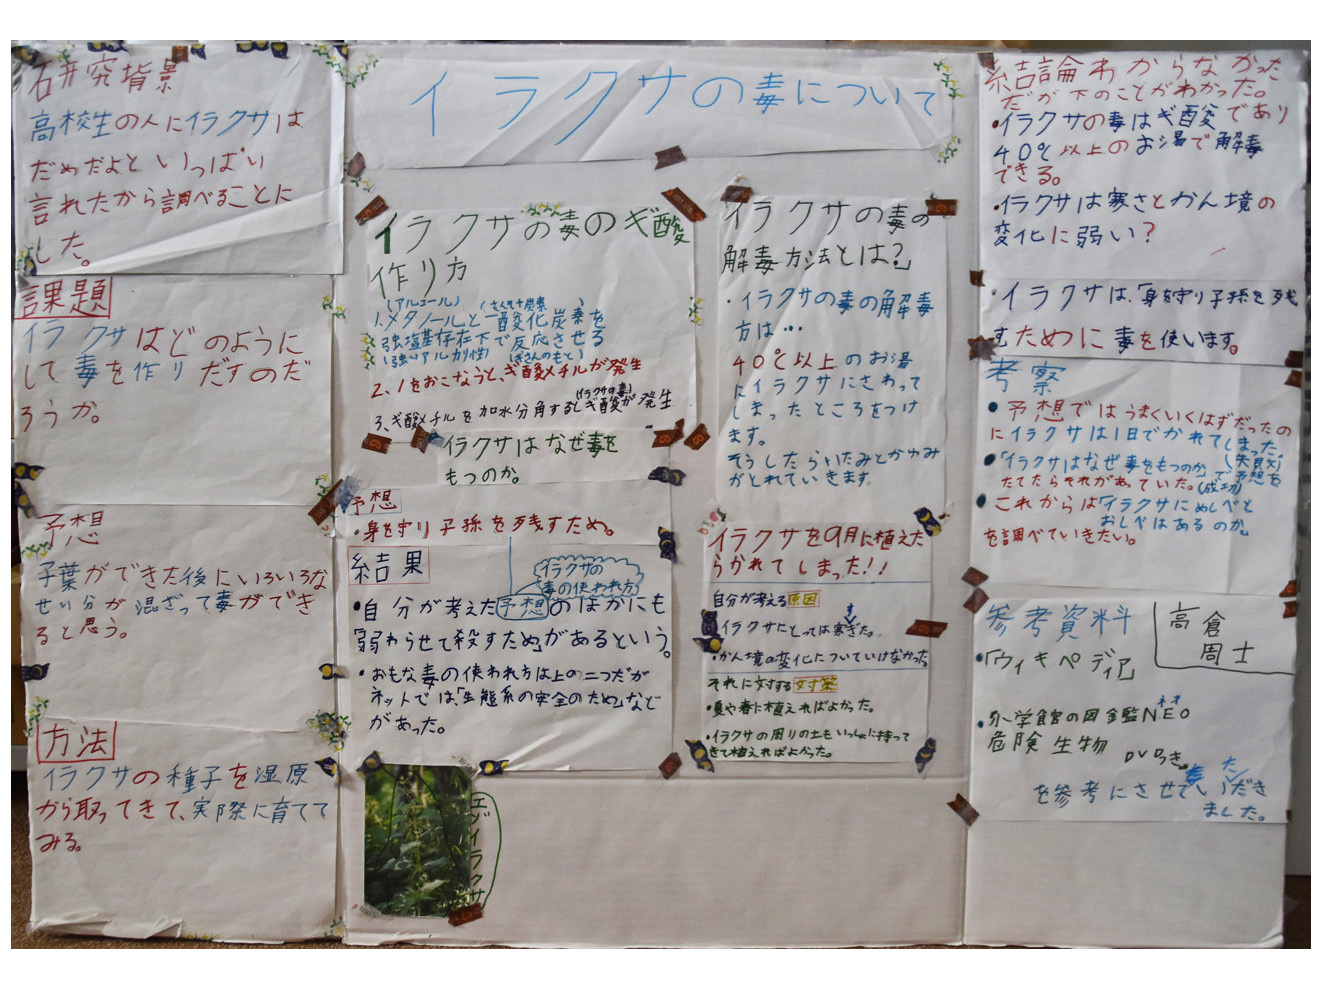 イラクサの毒について
研究背景
高校生の人にイラクサは
だめだよといっぱい
言れたから調べることに
した。
課題
イラクサはどのように
して毒を作りだすのだ
ろうか。
予想
子葉ができた後にいろいろな
せい分が混ざって毒ができ
ると思う。
方法
イラクサの種子を湿原
から取ってきて、実際に育てて
みる。
イラクサの毒のギ酸
作り方
(アルコール)
1.メタノールと一酸化炭素を
強塩基存在下で反応させる
(強いアルカリ性)
2、1をおこなうと、ギ酸メチルが発生
(イラクサの毒)
3、ギ酸メチルを加水分角するとギ酸が発生
イラクサはなぜ毒を
もつのか。
予想
・身を守り子孫を残すため。
結果
イラクサの
毒の使われ方
・自分が考えた予想のほかにも
「弱わらせて殺すため」があるという。
・おもな毒の使われ方は上の二つだが
ネットでは「生態系の安全のため」など
があった。
エゾイラクサ
「イラクサの毒の
解毒方法とは?」
・イラクサの毒の解毒
方は…
40℃以上のお湯
にイラクサにさわって
しまったところをつけ
ます。
そうしたらいたみとかゆみ
がとれていきます。
イラクサを9月に植えた
らかれてしまった!!
自分が考える原因
・イラクサにとっては寒すぎた。
・かん境の変化についていけなかった。
それに対する対策
・夏や春に植えればよかった。
・イラクサの周りの土もいっしょに持って
きて植えればよかった。
結論わからなかった
だが下のことがわかった。
・イラクサの毒はギ酸であり
40℃以上のお湯で解毒
できる。
・イラクサは寒さとかん境の
変化に弱い?
・イラクサは、「身を守り子孫を残
すために毒を使います。
考察
・予想ではうまくいくはずだったの
にイラクサは1日でかれてしまった。
(失敗)
・「イラクサはなぜ毒をもつのか」で予想を
たてたらそれがあていた。(成功)
・これからは「イラクサにめしべと
おしべはあるのか」
を調べていきたい。
参考資料
高倉
周士
・「ウィキペディア」
・小学館の図鑑NEO
ネオ
危険生物
DVDつき。
を参考にさせていただき
ました。